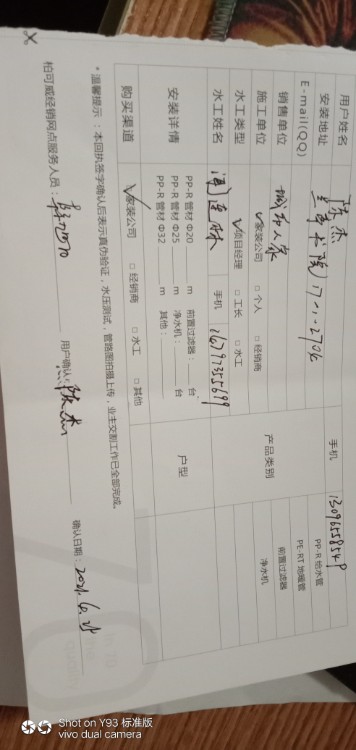 用户姓名 陈杰 手机
安装地址
E-mail(QQ) 产品类别 PP-R 给水管
销售单位 城市人家 PE-RT 地暖管
施工单位 ✓家装公司 □ 个人 □ 经销商 前置过滤器
水工类型 ✓项目经理 □ 工长 □ 水工 净水机
水工姓名 手机
安装详情 PP-R 管材 Φ20 m 前置过滤器: 台 户型
PP-R 管材 Φ25 m 净水机: 台
PP-R 管材 Φ32 m 其他:
购买渠道 ✓家装公司 □ 经销商 □ 水工 □ 其他
* 温馨提示:本回执签字确认后表示真伪验证,水压测试,管路图拍摄上传,业主交割工作已全部完成。
柏可威经销网点服务人员: 用户确认: 陈杰 确认日期: 2021.6.25
Shot on Y93 标准版
vivo dual camera